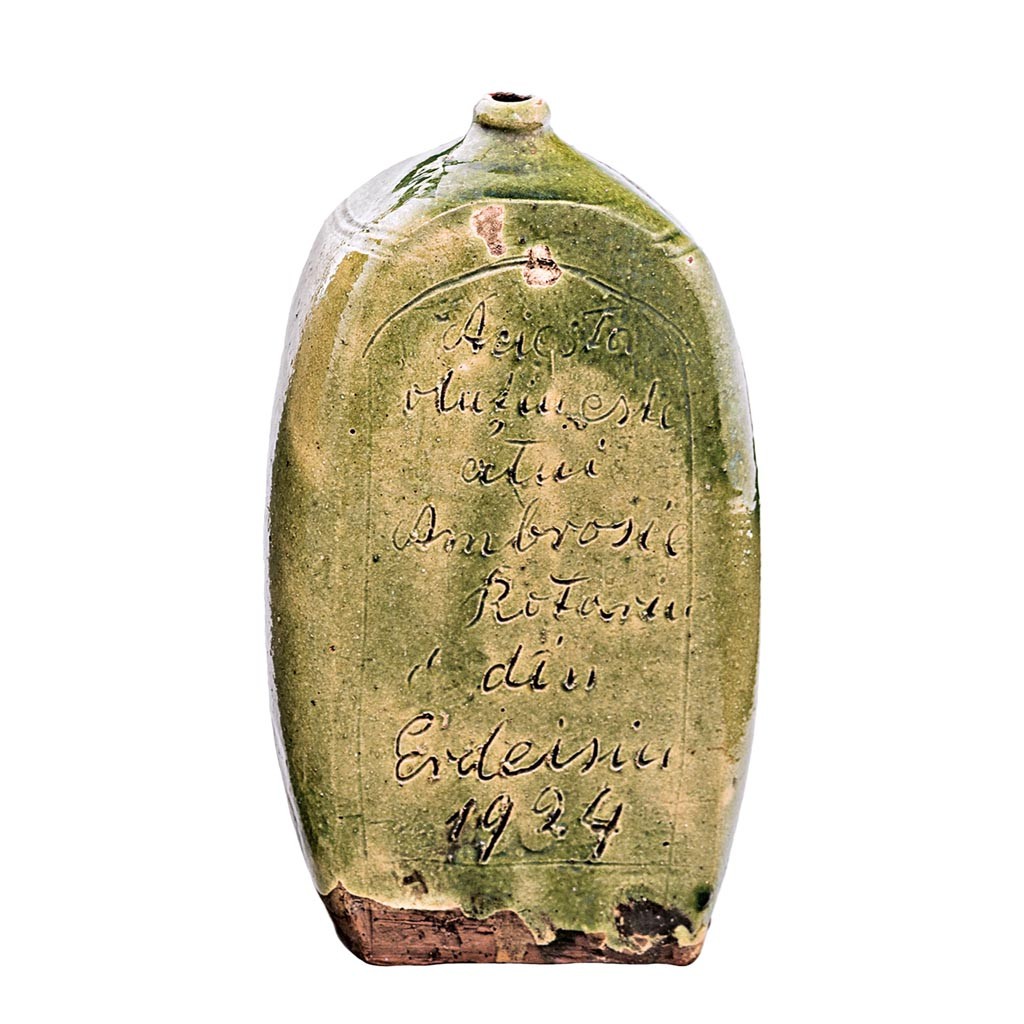 Aciesta
oluțiu este
atui
Ambrosie
Rotariu
din
Erdeisiu
1924